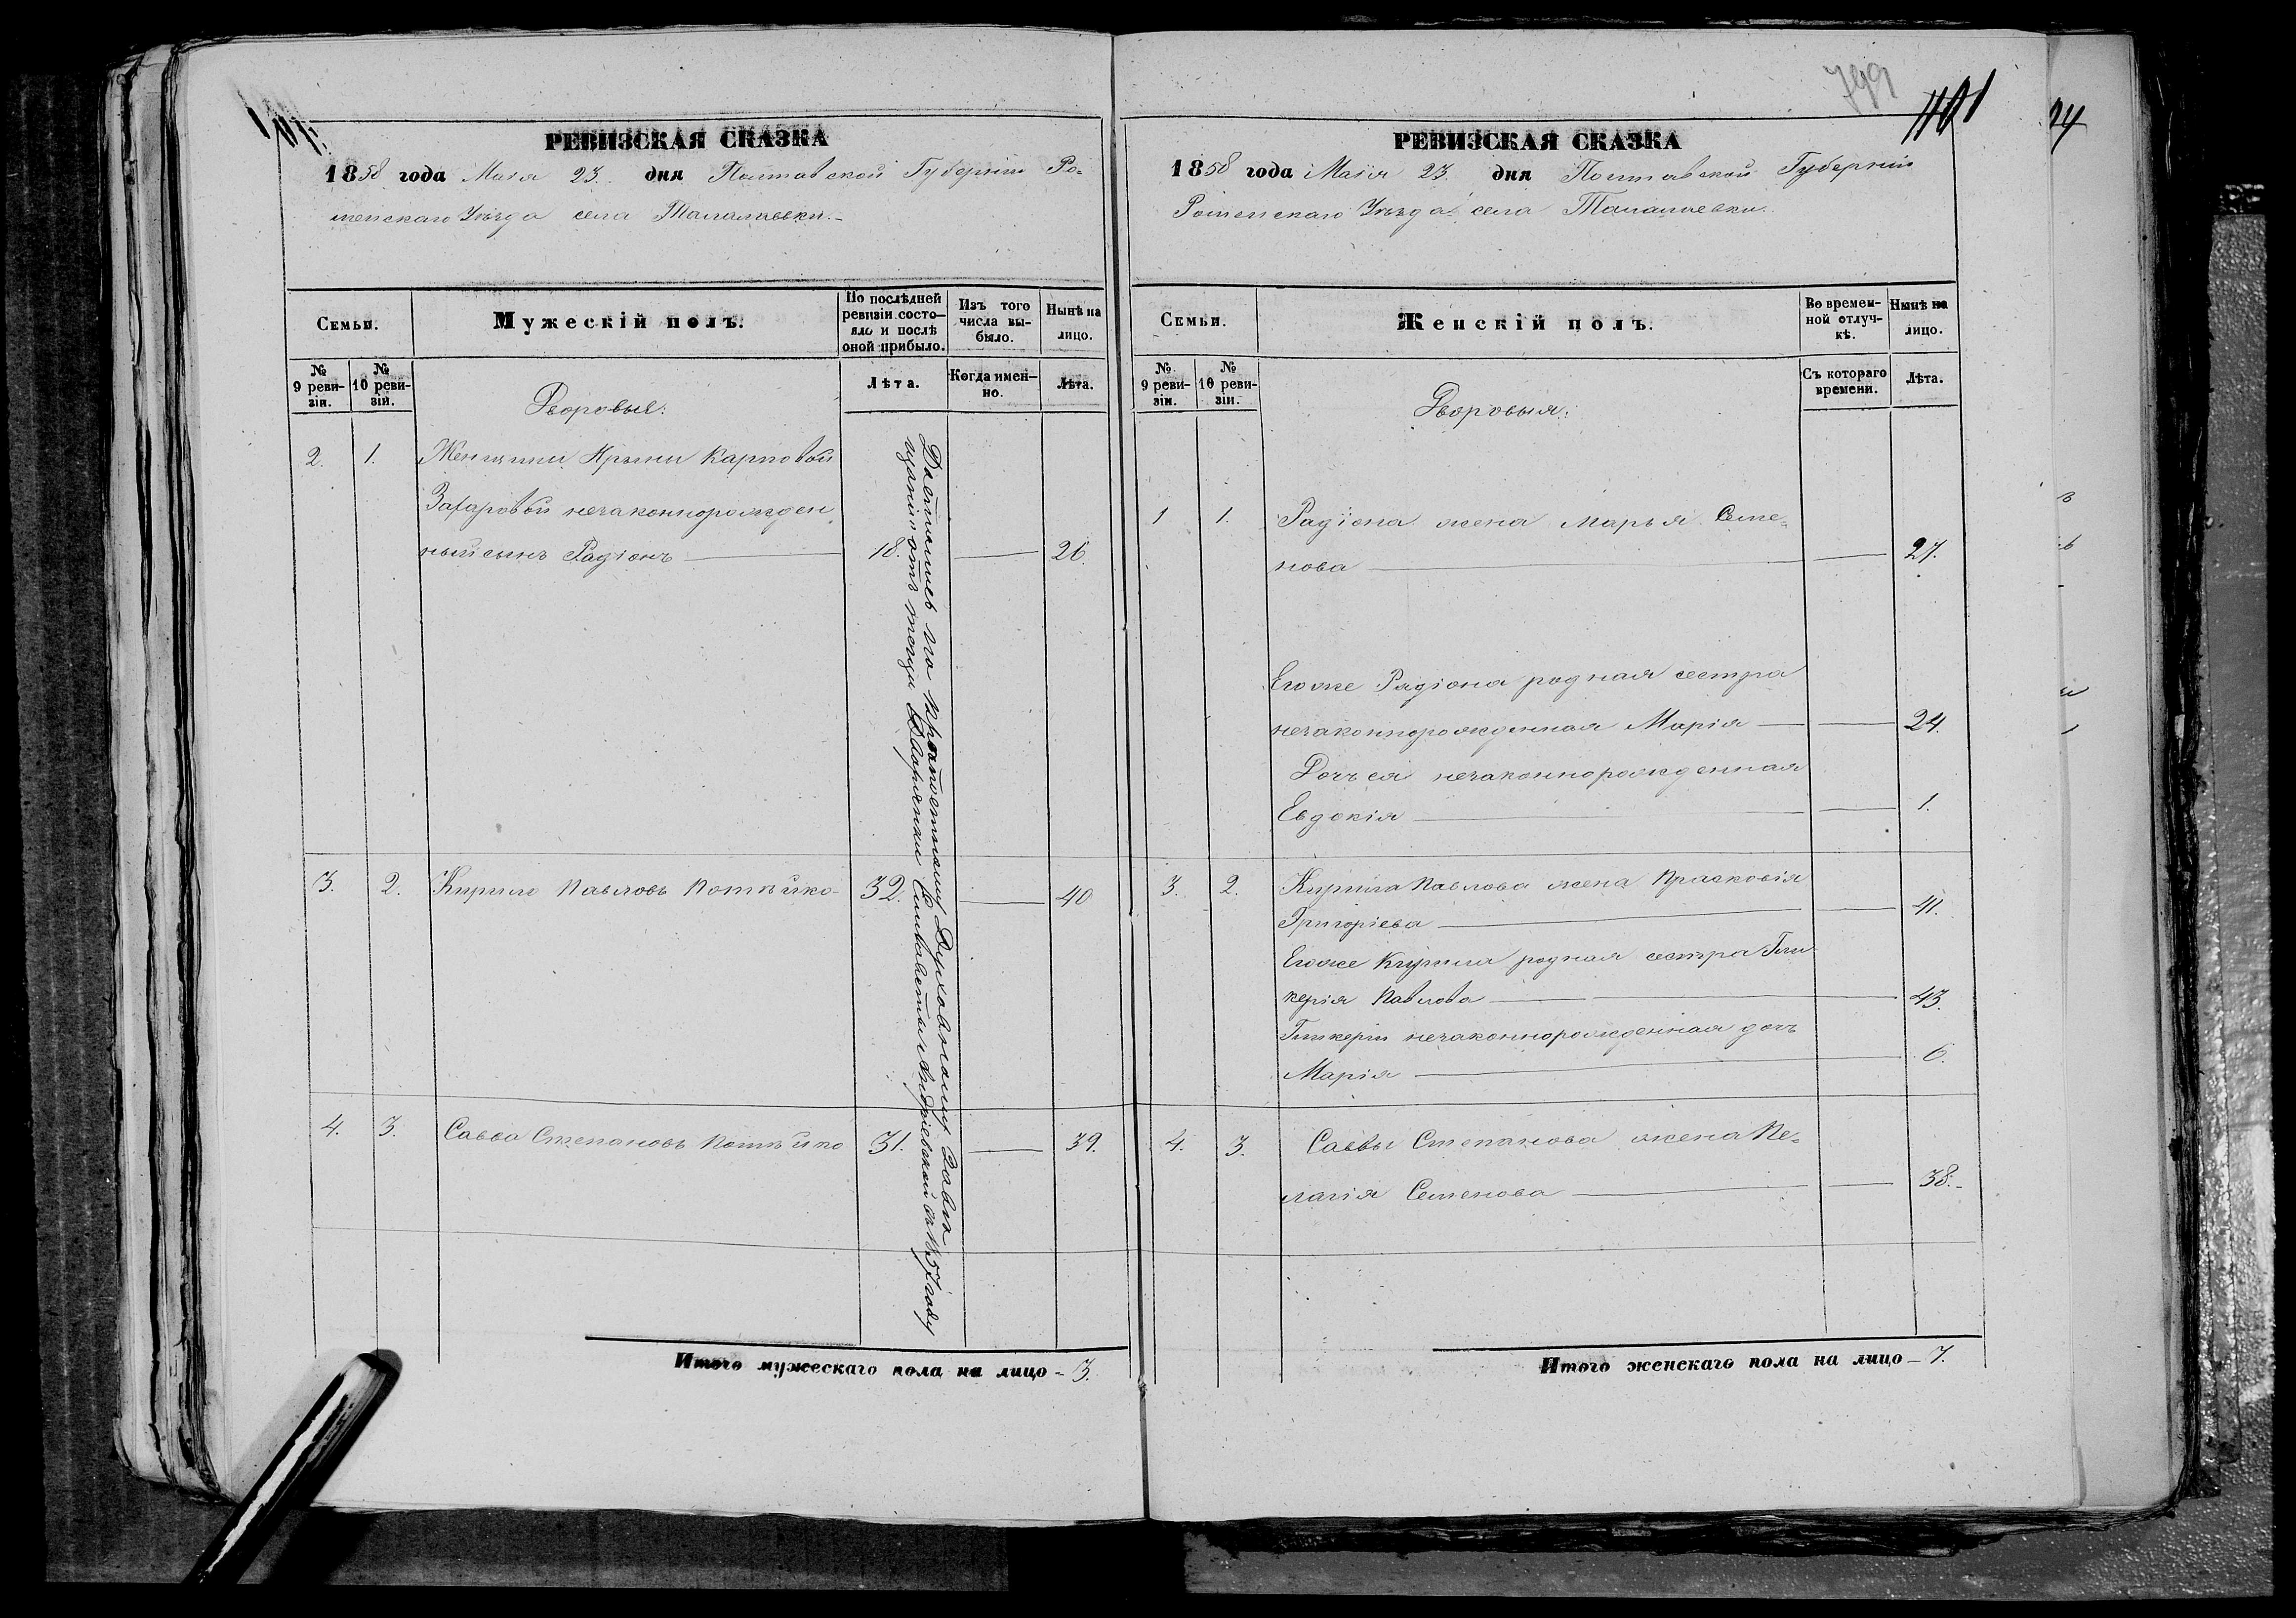 799
1101
24
РЕВИЗСКАЯ СКАЗКА
1858 года Маія 23. дня Полтавской Губерніи Ро-
менскаго Уѣзда села Талалаевки.
Семьи.
Мужескій полъ.
По послѣдней ревизіи состо-
яло и послѣ оной прибыло.
Изъ того числа вы-
было.
Нынѣ на лицо.
№ 9 реви-
зіи.
№ 10 реви-
зіи.
Лѣта.
Когда имен-
но.
Лѣта.
Дворовые:
2. 1. Женщины Ирины Карповой
Захаровой незаконнорожден
ный сынъ Радіонъ 18. 26.
3. 2. Кирило Павловъ Потѣйко 32. 40
4. 3. Савва Степановъ Потѣйко 31. 39.
Достались по Духовному
щанію отъ тещи Елисаветы Андріевской въ 1857 году
Итого мужескаго пола на лицо - 3.
РЕВИЗСКАЯ СКАЗКА
1858 года Маія 23. дня Полтавской Губерніи
Роменскаго Уѣзда села Талалаевки.
Семьи.
Женскій полъ.
Во времен-
ной отлуч-
кѣ.
Нынѣ на лицо.
№ 9 реви-
зіи.
№ 10 реви-
зіи.
Съ котораго времени.
Лѣта.
Дворовыя:
1 1. Радіона жена Марья Семе-
нова 27.
Егоже Радіона родная сестра
незаконнорожденная Марія 24.
Дочь ея незаконнорожденная
Евдокія 1.
3. 2. Кирила Павлова жена Прасковія
Григоріева 41.
Егоже Кирила родная сестра Гли
керія Павлова 43.
Гликеріи незаконнорожденная дочь
Марія 6.
4. 3. Саввы Степанова жена Пе-
лагія Семенова 38.
Итого женскаго пола на лицо - 7.